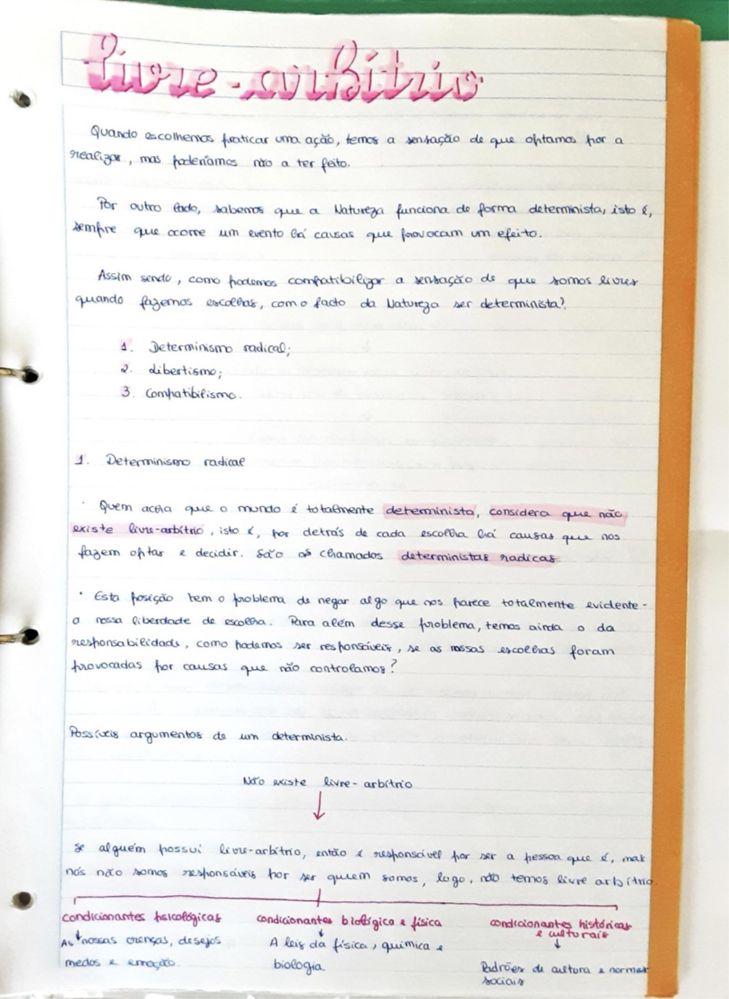 livre-arbítrio
Quando escolhemos praticar uma ação, temos a sensação de que optamos por a
realizar, mas poderíamos não a ter feito.
Por outro lado, sabemos que a Natureza funciona de forma determinista, isto é,
sempre que ocorre um evento há causas que provocam um efeito.
Assim sendo, como podemos compatibilizar a sensação de que somos livres
quando fazemos escolhas, com o facto da Natureza ser determinista?
1. Determinismo radical;
2. Libertismo;
3. Compatibilismo.
1. Determinismo radical
· Quem acha que o mundo é totalmente determinista, considera que não
existe livre-arbítrio, isto é, por detrás de cada escolha há causas que nos
fazem optar e decidir. São os chamados deterministas radicas.
· Esta posição tem o problema de negar algo que nos parece totalmente evidente -
a nossa liberdade de escolha. Para além desse problema, temos ainda o da
responsabilidade, como podemos ser responsáveis, se as nossas escolhas foram
provocadas por causas que não controlamos?
Possíveis argumentos de um determinista.
Não existe livre-arbítrio
Se alguém possui livre-arbítrio, então é responsável por ser a pessoa que é, mas
nós não somos responsáveis por ser quem somos, logo, não temos livre arbítrio.
condicionantes psicológicas
As nossas crenças, desejos
medos e emoção.
condicionantes biológica e física
A leis da física, química e
biologia
condicionantes históricas
e culturais
Padrões de cultura e normas
sociais